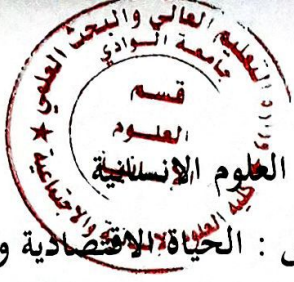 التعليم العالي والبحث العلمي
جامعة الوادي
قسم
العلوم
الإنسانية
كلية العلوم الاجتماعية
العلوم الإنسانية
: الحياة الاقتصادية و